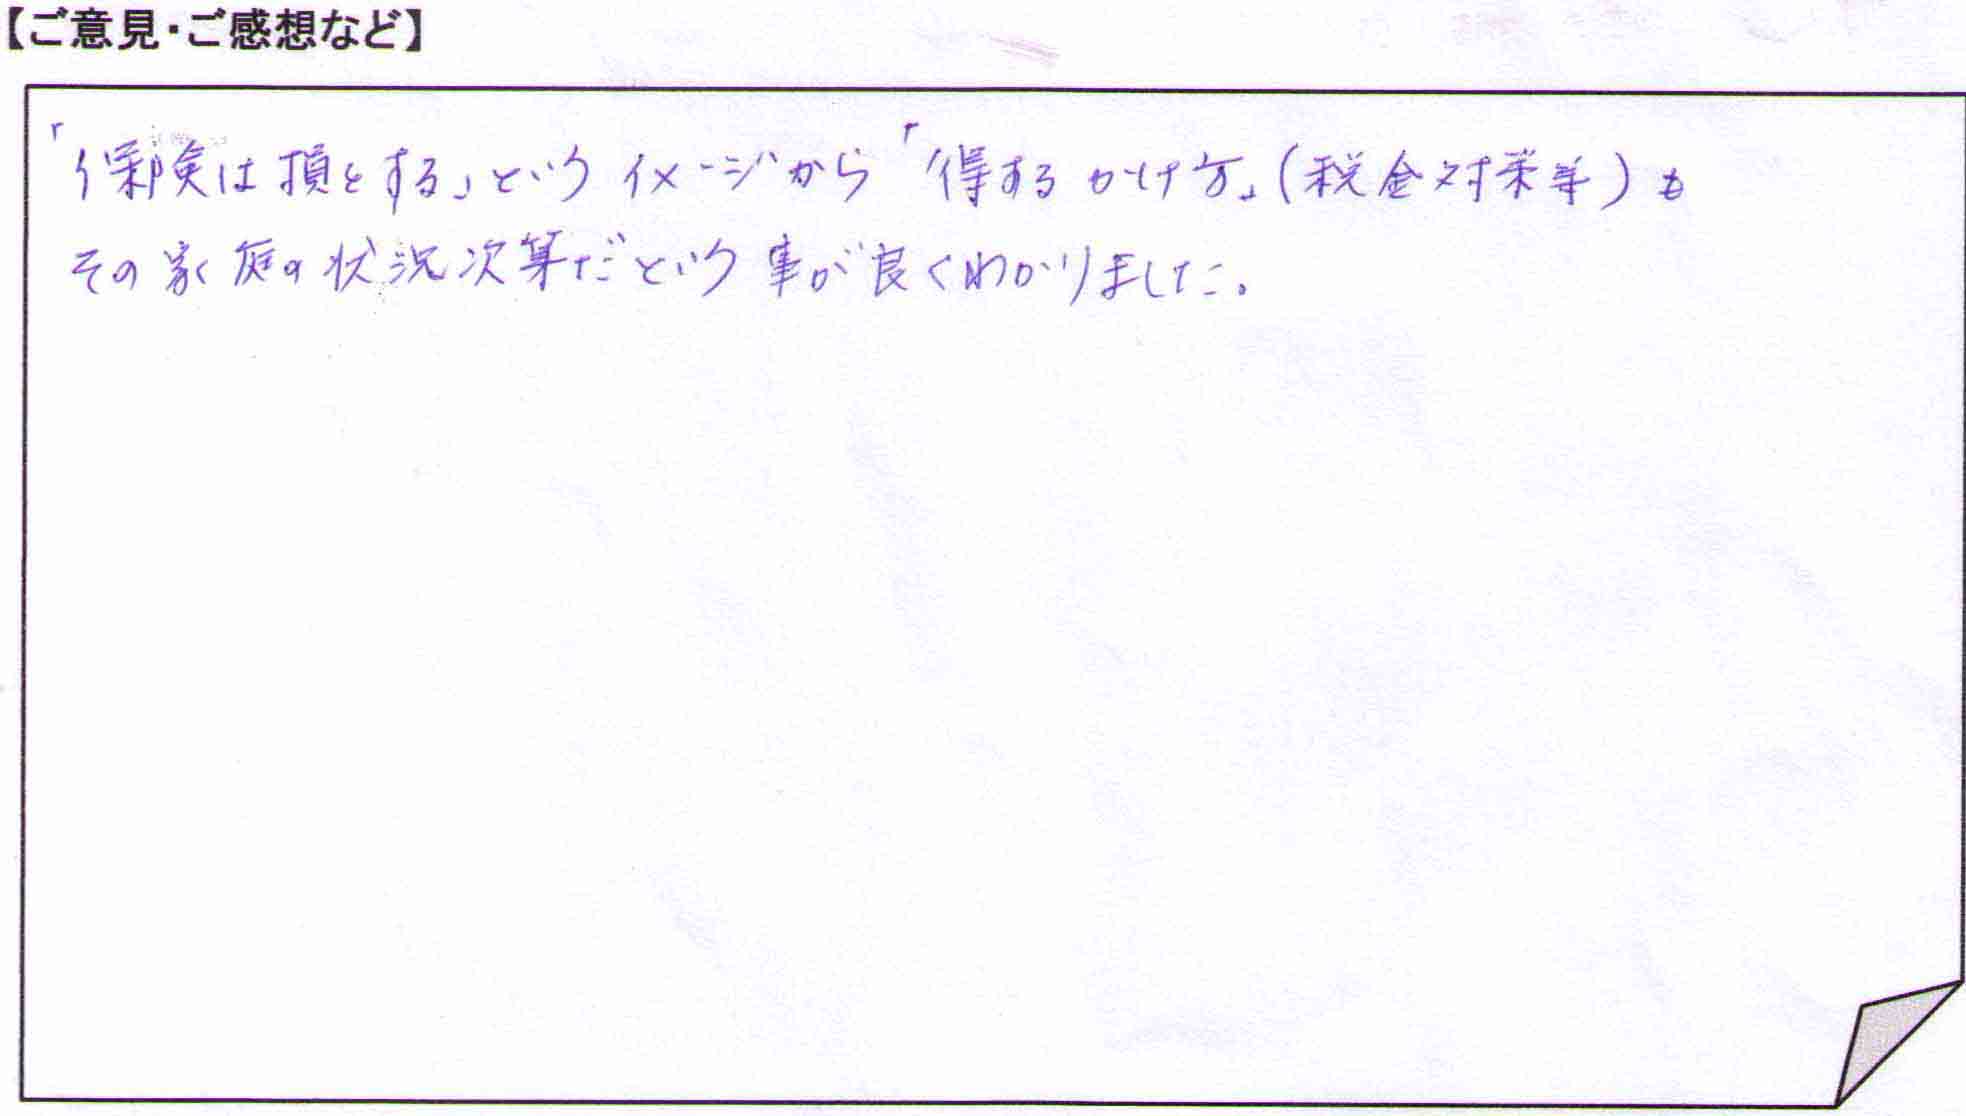 【ご意見・ご感想など】
「保険は損をする」という イメージから「得する かけ方」(税金対策等)も
その家庭の状況次第だという事が良くわかりました。